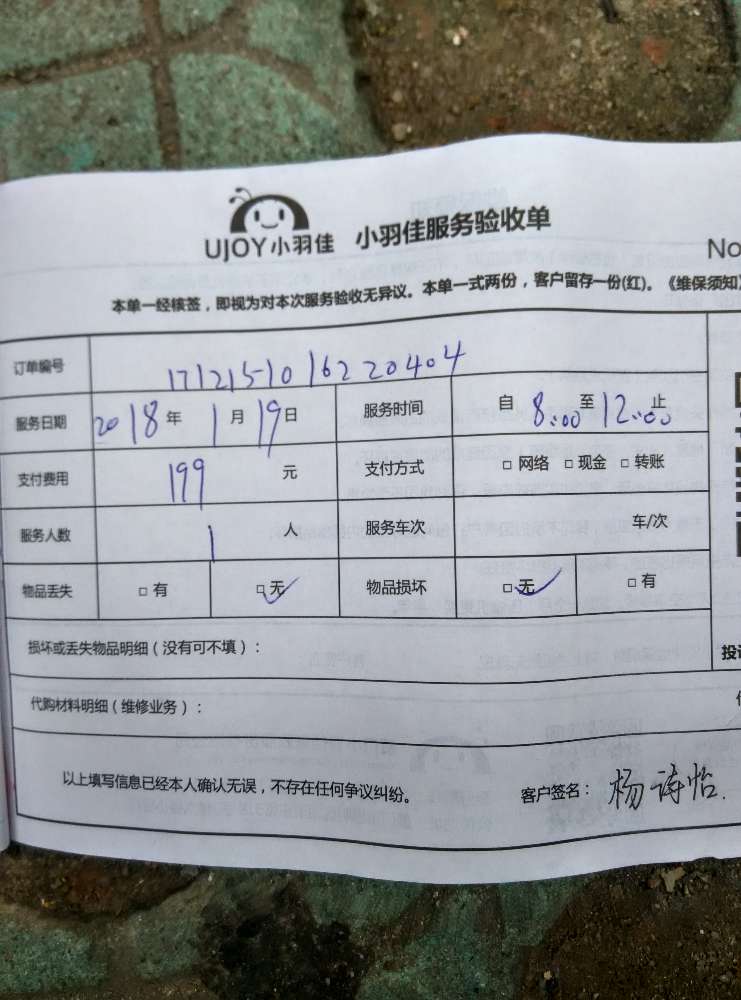 UJOY小羽佳 小羽佳服务验收单
No
本单一经核签，即视为对本次服务验收无异议。本单一式两份，客户留存一份(红)。《维保须知》
订单编号 1712151016220404
服务日期 2018年1月19日 服务时间 自8:00至12:00止
支付费用 199元 支付方式 □ 网络 □ 现金 □ 转账
服务人数 1人 服务车次 车/次
物品丢失 □ 有 □ 无 物品损坏 □ 无 □ 有
损坏或丢失物品明细（没有可不填）：
代购材料明细（维修业务）：
以上填写信息已经本人确认无误，不存在任何争议纠纷。 客户签名：杨诗怡.